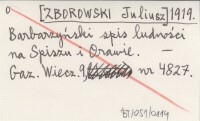 [ZBOROWSKI Juliusz] 1919.
Barbarzyński spis ludności
na Spiszu i Orawie. —
Gaz. Wiecz. 9, nr 4827.